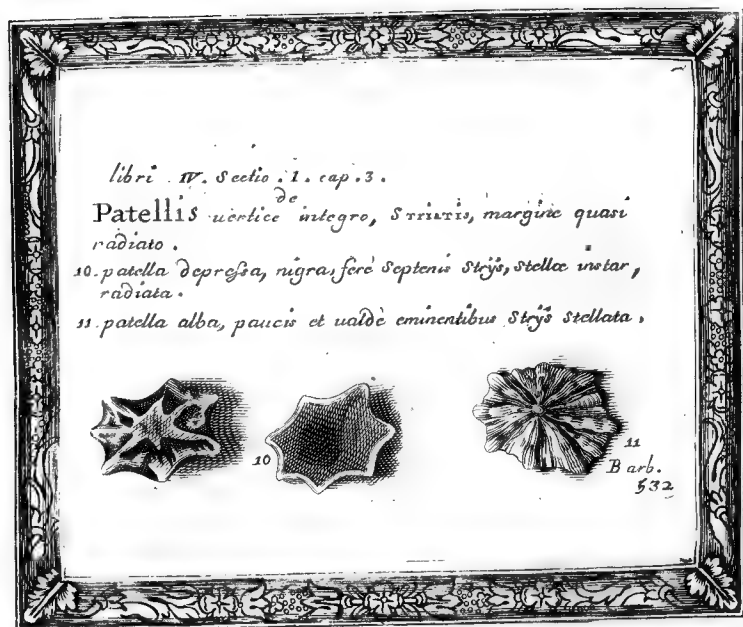 libri IV. Sectio . 1. cap . 3 .
de
Patellis uertice integro, STRIATIS, margine quasi
radiato .
10. patella depreſsa, nigra, ferè Septenis Strijs, Stellæ instar,
radiata .
11. patella alba, paucis et ualdè eminentibus Strijs Stellata .
10
11
Barb.
532